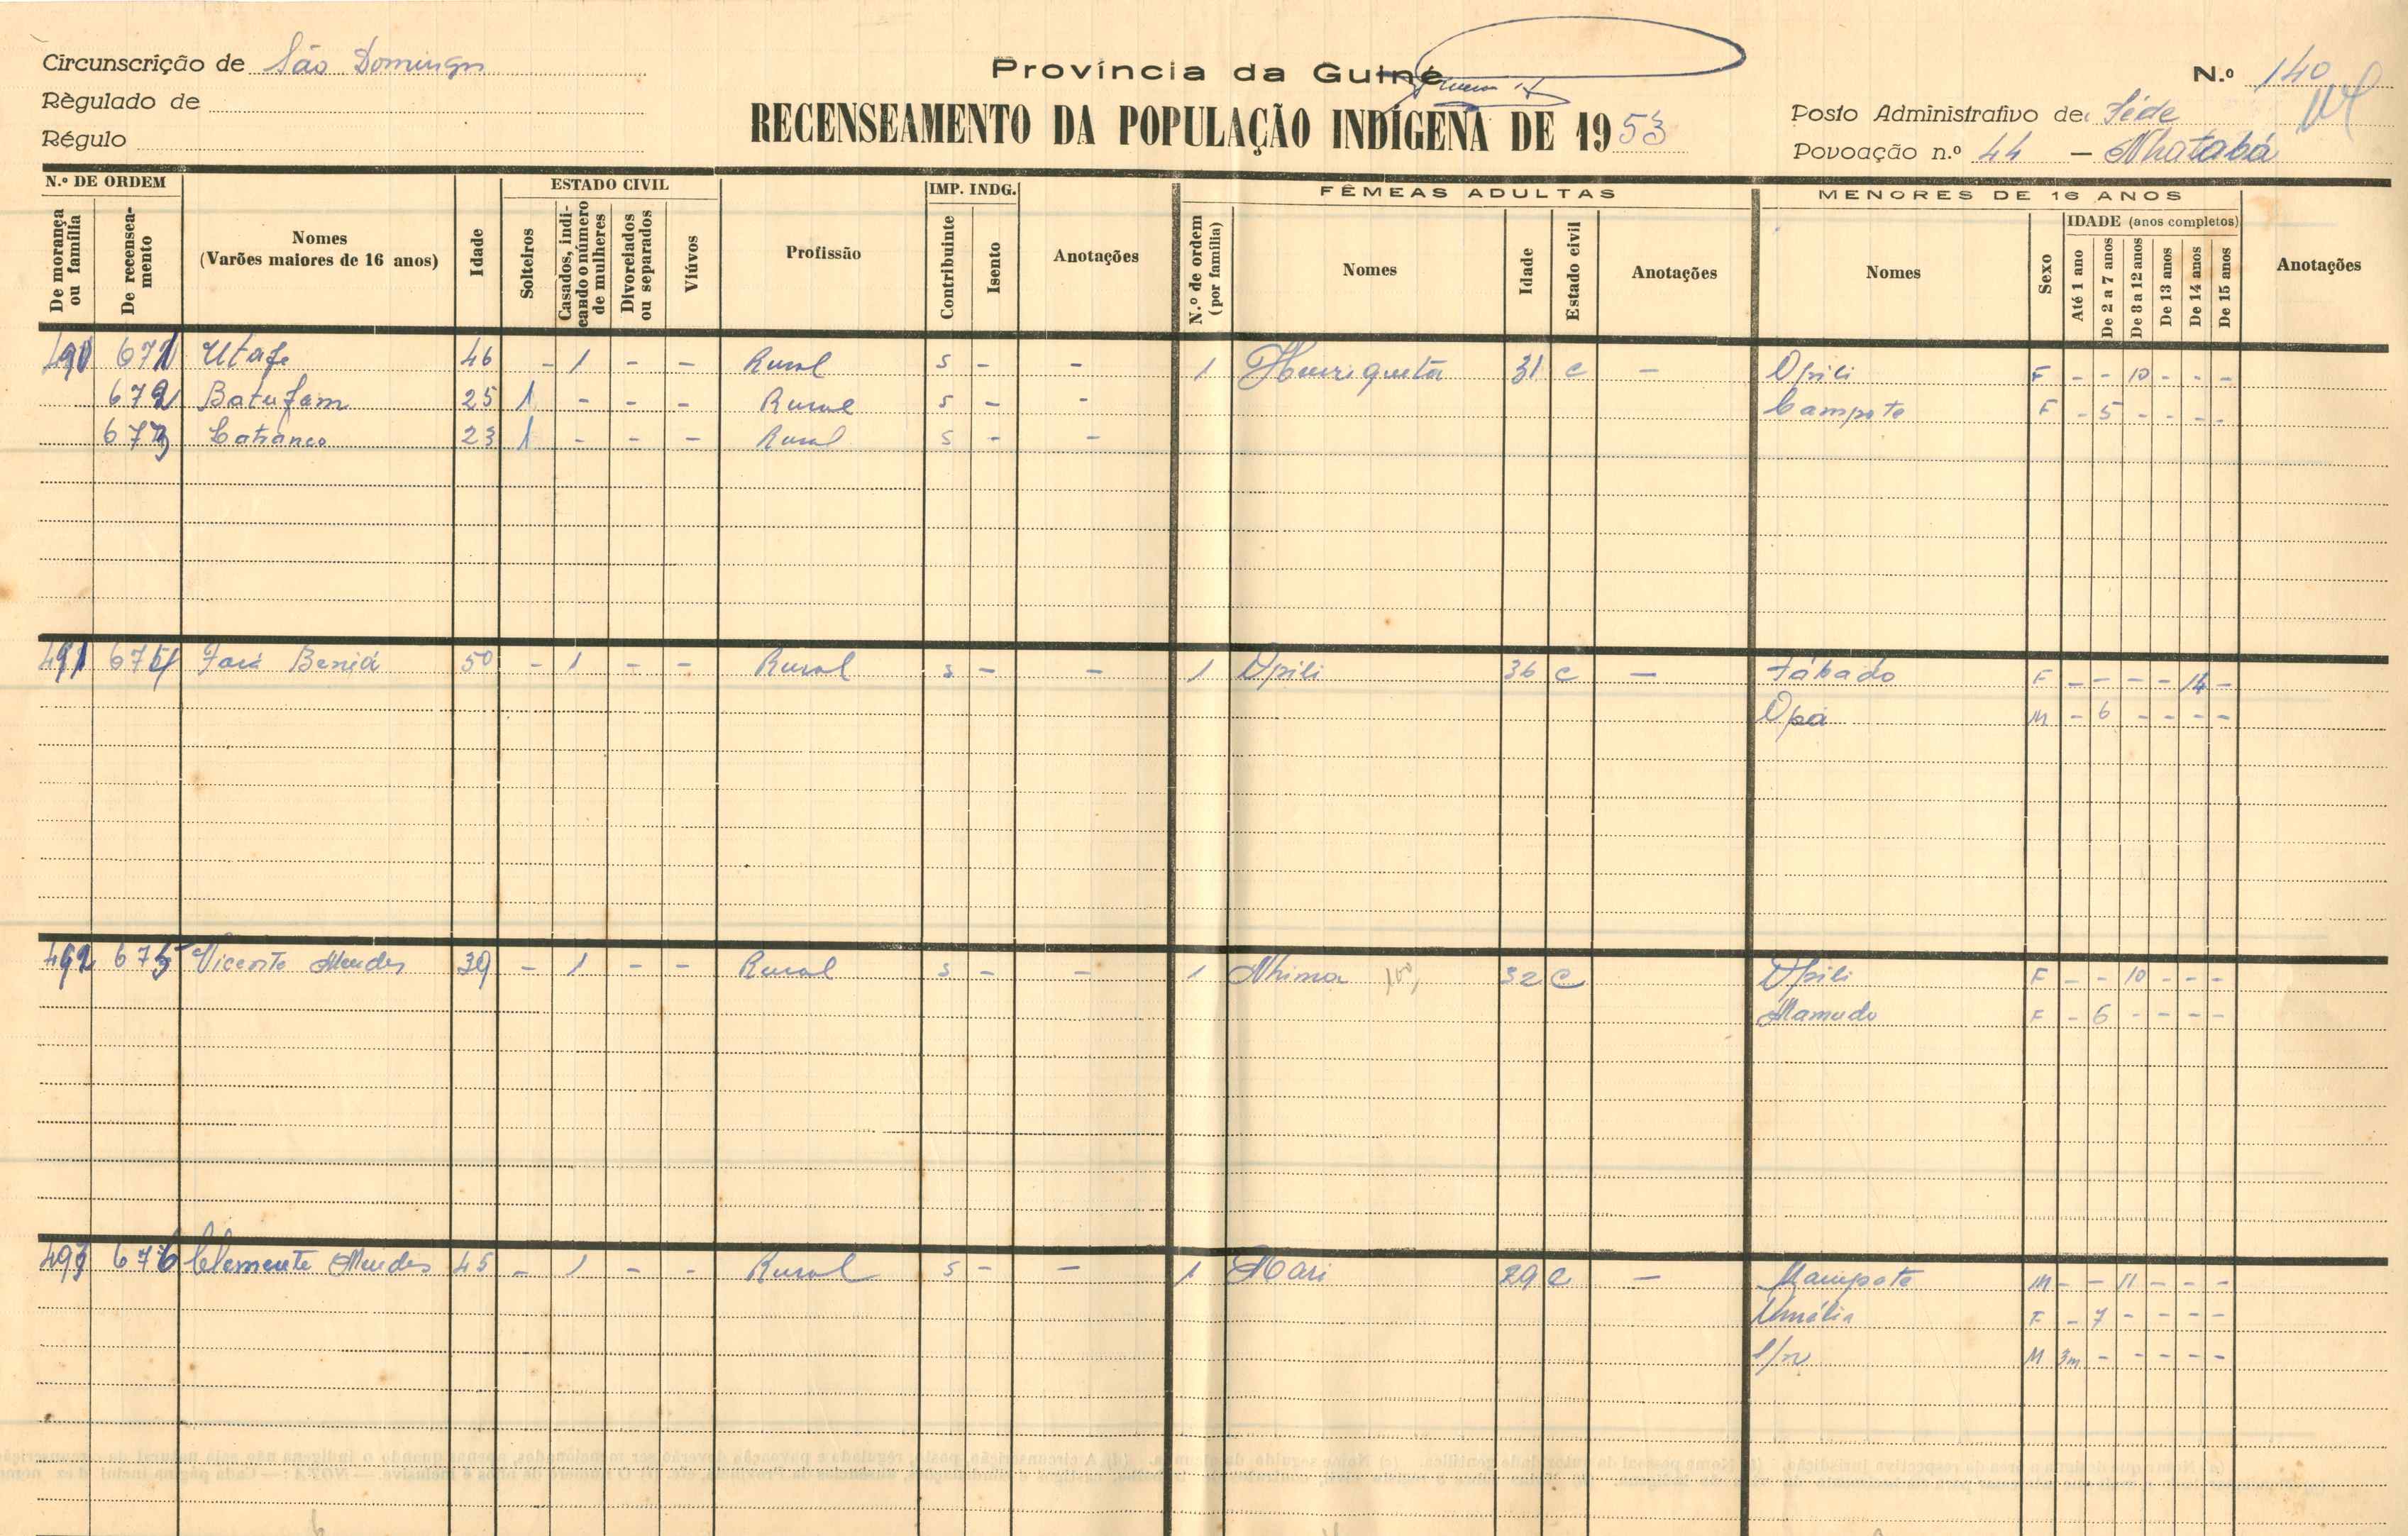 Circunscrição de São Domingos
Règulado de
Régulo
Província da Guiné
RECENSEAMENTO DA POPULAÇÃO INDÍGENA DE 1953
N.º 140
Posto Administrativo de Séde
Povoação n.º 44 – Nhatabá
N.º DE ORDEM
De morança ou família
De recenseamento
Nomes
(Varões maiores de 16 anos)
Idade
ESTADO CIVIL
Solteiros
Casados, indicando o número de mulheres
Divorciados ou separados
Viúvos
Profissão
IMP. INDG.
Contribuinte
Isento
Anotações
FÊMEAS ADULTAS
N.º de ordem (por família)
Nomes
Idade
Estado civil
Anotações
MENORES DE 16 ANOS
Nomes
Sexo
IDADE (anos completos)
Até 1 ano
De 2 a 7 anos
De 8 a 12 anos
De 13 anos
De 14 anos
De 15 anos
Anotações
490 671 Utafe 46 - 1 - - Rural s - - 1 Henriqueta 31 c - Opili F - - 10 - - -
672 Batufam 25 1 - - - Rural s - - Campote F - 5 - - - -
673 23 1 - - - Rural s - -
491 674 50 - 1 - - Rural s - - 1 Opili 36 c - Sábado F - - - - 14 -
Opá M - 6 - - - -
492 675 Vicente Mendes 39 - 1 - - Rural s - - 1 Nhima 32 c Opili F - - 10 - - -
Mamudo F - 6 - - - -
493 676 Clemente Mendes 45 - 1 - - Rural s - - 1 Mari 29 c - Mampote M - - 11 - - -
Amélia F - 7 - - - -
s/n M 3m - - - - -